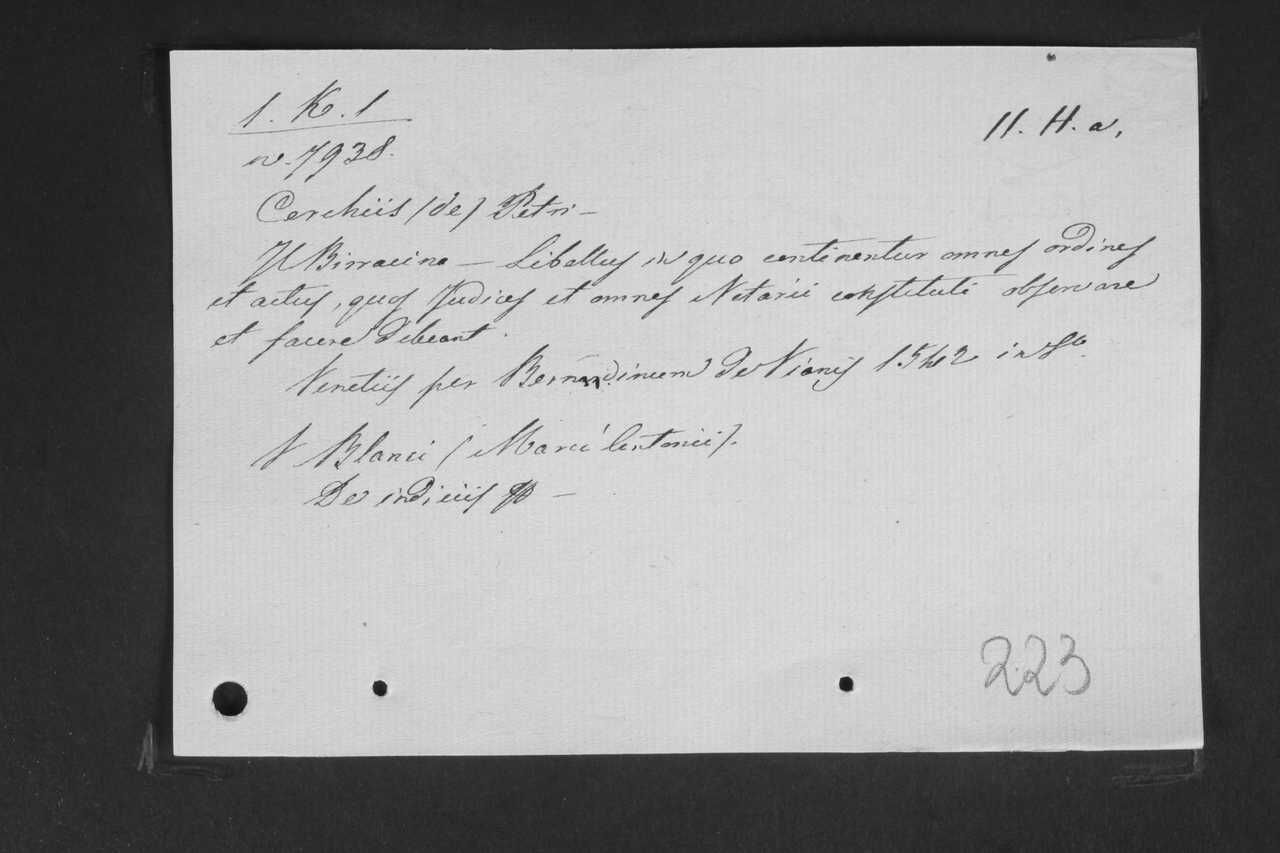 1. K. 1
11. H. a.
n. 7938.
Cerchiis (de) Petri -
Il Birracino - Libellus in quo continentur omnes ordines
et actus, quos Judices et omnes Notarii constituti observare
et facere debeant.
Venetiis per Bernardinum de Vianis 1542 in 8º.
V Blanci (Marci Antonii).
De indiciis
223